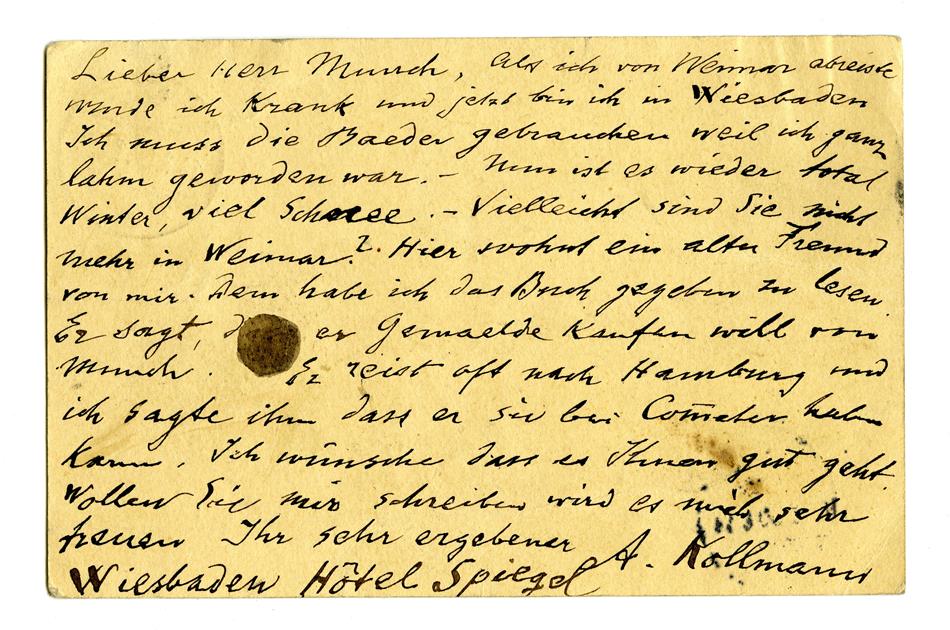 Lieber Herr Munch, Als ich von Weimar abreiste
wurde ich Krank und jetzt bin ich in Wiesbaden
Ich muss die Baeder gebrauchen weil ich ganz
lahm geworden war. – Nun ist es wieder total
Winter, viel Schnee. – Vielleicht sind Sie nicht
mehr in Weimar?. Hier wohnt ein alter Freund
von mir. Dem habe ich das Buch gegeben zu lesen
Er sagt, er Gemaelde Kaufen will von
Munch. Er reist oft nach Hamburg und
ich sagte ihm dass er sie bei Com̄eter haben
Kann. Ich wünsche dass es Ihnen gut geht
Wollen Sie mir schreiben wird es mich sehr
freuen Ihr sehr ergebener A. Kollmann
Wiesbaden Hôtel Spiegel